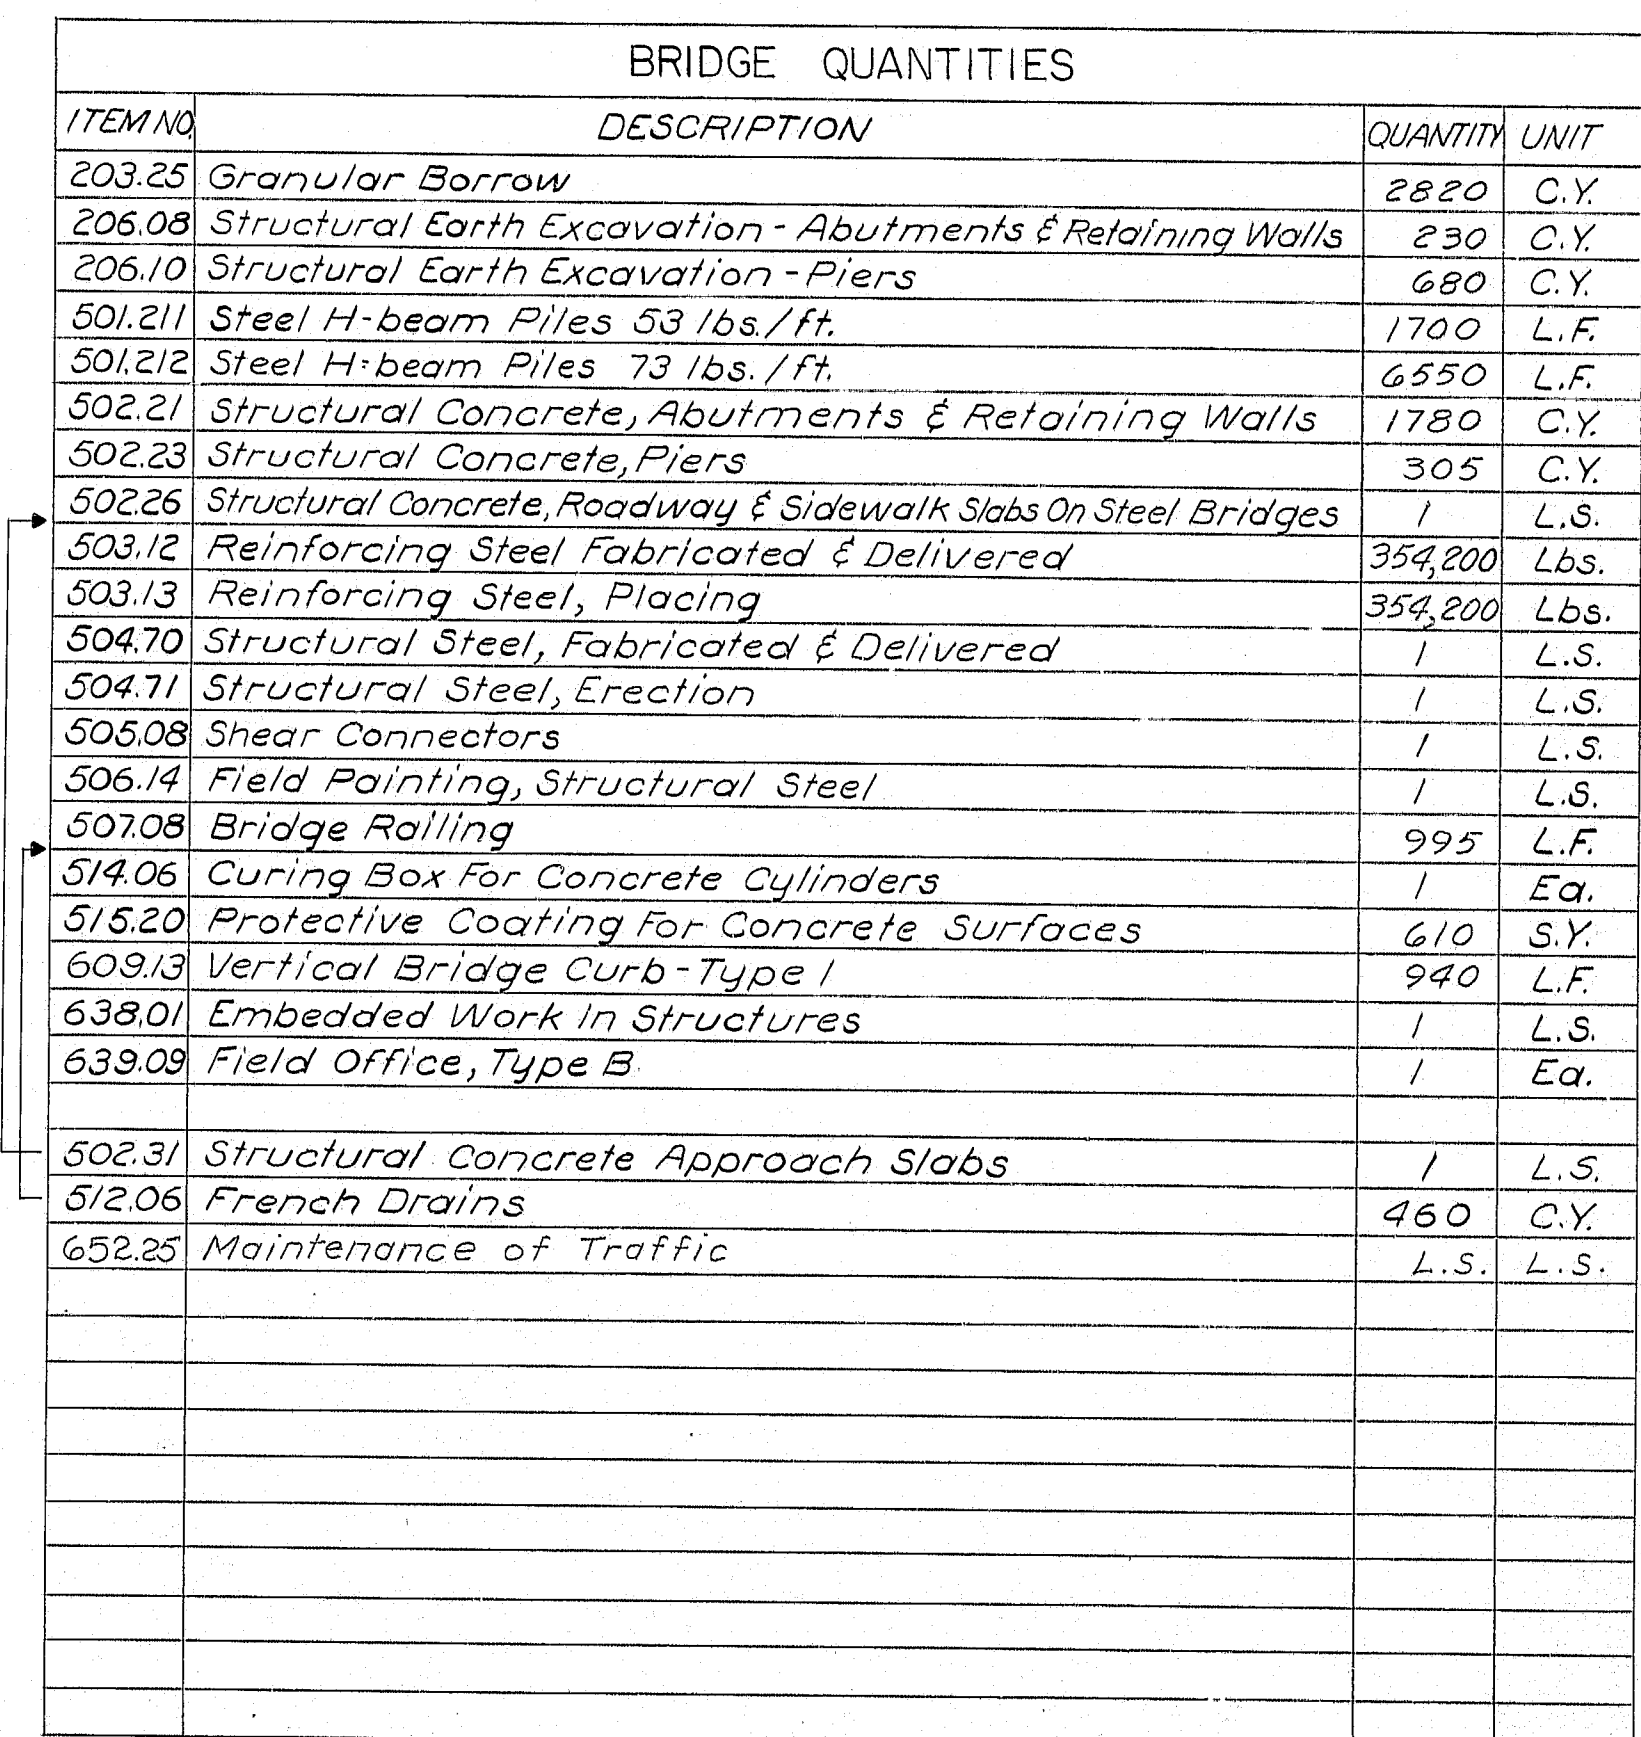 BRIDGE QUANTITIES
ITEM NO. DESCRIPTION QUANTITY UNIT
203.25 Granular Borrow 2820 C.Y.
206.08 Structural Earth Excavation - Abutments & Retaining Walls 230 C.Y.
206.10 Structural Earth Excavation - Piers 680 C.Y.
501.211 Steel H-beam Piles 53 lbs./ft. 1700 L.F.
501.212 Steel H-beam Piles 73 lbs./ft. 6550 L.F.
502.21 Structural Concrete, Abutments & Retaining Walls 1780 C.Y.
502.23 Structural Concrete, Piers 305 C.Y.
502.26 Structural Concrete, Roadway & Sidewalk Slabs On Steel Bridges 1 L.S.
503.12 Reinforcing Steel Fabricated & Delivered 354,200 Lbs.
503.13 Reinforcing Steel, Placing 354,200 Lbs.
504.70 Structural Steel, Fabricated & Delivered 1 L.S.
504.71 Structural Steel, Erection 1 L.S.
505.08 Shear Connectors 1 L.S.
506.14 Field Painting, Structural Steel 1 L.S.
507.08 Bridge Railing 995 L.F.
514.06 Curing Box For Concrete Cylinders 1 Ea.
515.20 Protective Coating For Concrete Surfaces 610 S.Y.
609.13 Vertical Bridge Curb - Type 1 940 L.F.
638.01 Embedded Work In Structures 1 L.S.
639.09 Field Office, Type B 1 Ea.
502.31 Structural Concrete Approach Slabs 1 L.S.
512.06 French Drains 460 C.Y.
652.25 Maintenance of Traffic L.S. L.S.